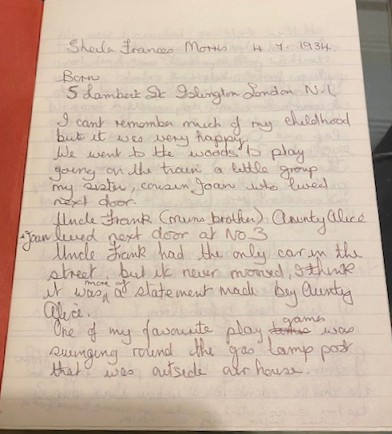 Sheila Frances Morris 4.7.1934
Born
5 Lambert St Islington London N.1.
I cant remember much of my childhood
but it was very happy
We went to the woods to play
going on the train a little group
my sister, cousin Joan who lived
next door.
Uncle Frank (mums brother) Aunty Alice
+ Joan lived next door at No 3
Uncle Frank had the only car in the
street, but it never moved, I think
it was more of a statement made by Aunty
Alice.
One of my favourite play games was
swinging round the gas lamp post
that was outside our house.